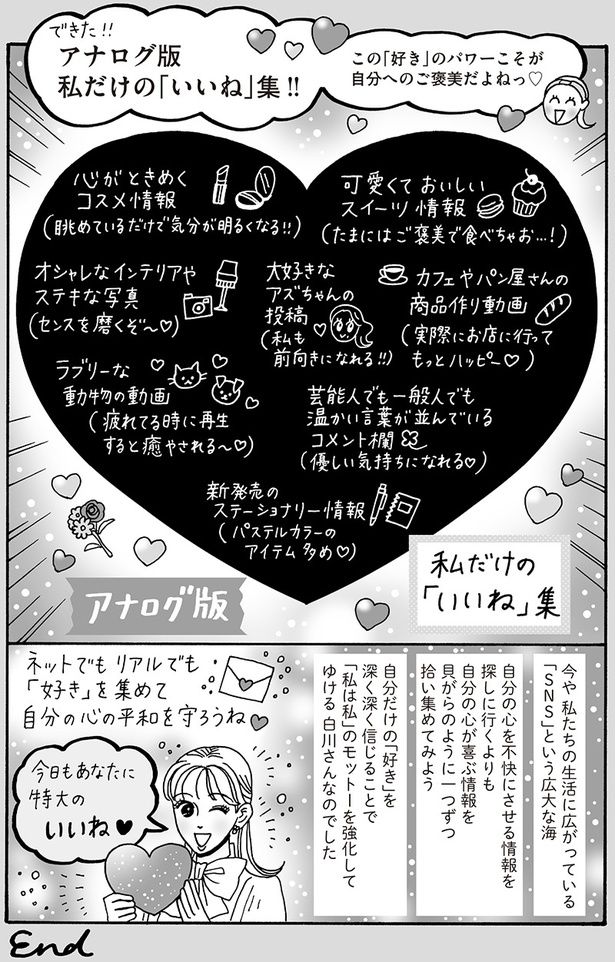 できた!!
アナログ版
私だけの「いいね」集!!
この「好き」のパワーこそが
自分へのご褒美だよねっ♡
心がときめく
コスメ情報
(眺めているだけで気分が明るくなる!!)
可愛くて おいしい
スイーツ情報
(たまにはご褒美で食べちゃお…!)
オシャレなインテリアや
ステキな写真
(センスを磨くぞ〜♡)
大好きな
アズちゃんの
投稿
(私も
前向きになれる!!)
カフェやパン屋さんの
商品作り動画
(実際にお店に行って
もっとハッピー♡)
ラブリーな
動物の動画
(疲れてる時に再生
すると癒やされる〜♡)
芸能人でも一般人でも
温かい言葉が並んでいる
コメント欄
(優しい気持ちになれる♡)
新発売の
ステーショナリー情報
(パステルカラーの
アイテム多め♡)
アナログ版
私だけの
「いいね」集
今や私たちの生活に広がっている
「SNS」という広大な海
自分の心を不快にさせる情報を
探しに行くよりも
自分の心が喜ぶ情報を
貝がらのように一つずつ
拾い集めてみよう
自分だけの「好き」を
深く深く信じることで
「私は私」のモットーを強化して
ゆける 白川さんなのでした
ネットでも リアルでも
「好き」を集めて
自分の心の平和を守ろうね♥
今日もあなたに
特大の
いいね♥
End